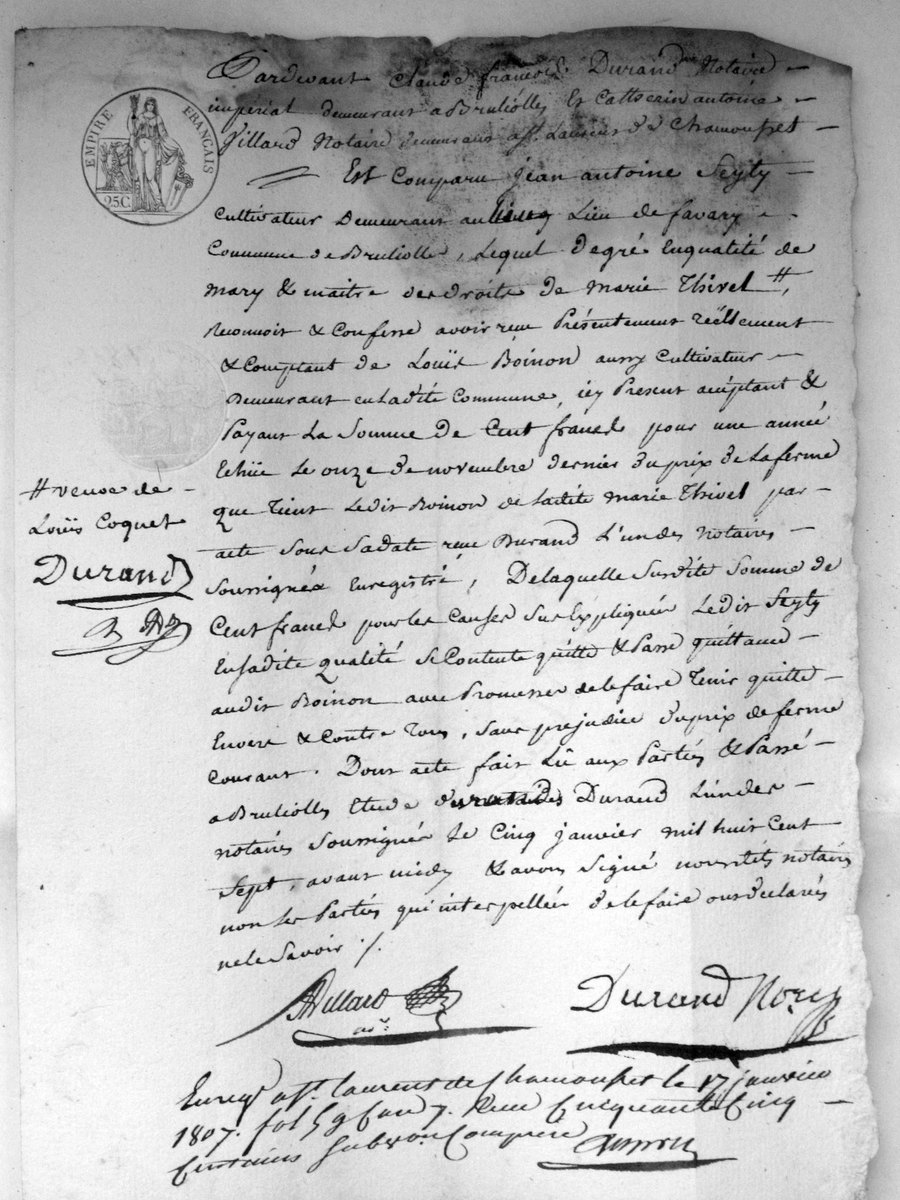 EMPIRE FRANÇAIS
25C.
Pardevant Claude françois Durand Notaire
impérial demeurant a Bruliolles Et Catherin antoine
Villard Notaire demeurant a St. Laurent de Chamousset
Est Comparu jean antoine Seyty
Cultivateur Demeurant au Lieu de favary
Commune de Brulliolle, Lequel de gré En qualité de
mary & maitre des droits de Marie Thivel #,
Reconnoit & Confesse avoir reçu Présentement réellement
& Comptant de Louïs Boinon aussy Cultivateur
Demeurant en Ladite Commune, icy Present acceptant &
Payant La Somme de Cent francs pour une année
Echüe Le onze de novembre dernier du prix de La ferme
que Tient Ledit Boinon de Ladite Marie Thivel par
acte Sous Sa date reçu Durand L'un des Notaires
Soussignés Enregistré, De laquelle Susdite Somme de
Cent francs pour les Causes Sus Expliquées Ledit Seyty
En sadite qualité Se Contente quitte & Passe quittance
audit Boinon avec Promesses de le faire Tenir quitte
Envers & Contre Tous, Sans prejudice du prix de ferme
Courant. Dont acte fait Lû aux Parties & Passé
a Brulliolles Etude Durand L'un des
notaires Soussignés Le Cinq janvier mil huit Cent
Sept, avant midy & avons Signé nousdits notaires
non Les Parties qui interpellées de le faire ont déclarés
ne le Savoir ./.
# veuve de
Louïs Coquet
Durand
Villard
Durand Nore
Enregé a St. laurent de Chamousset le 17 janvier
1807. fol 59 Case 7. Reçu Cinquante Cinq
Centimes Subvon Comprise